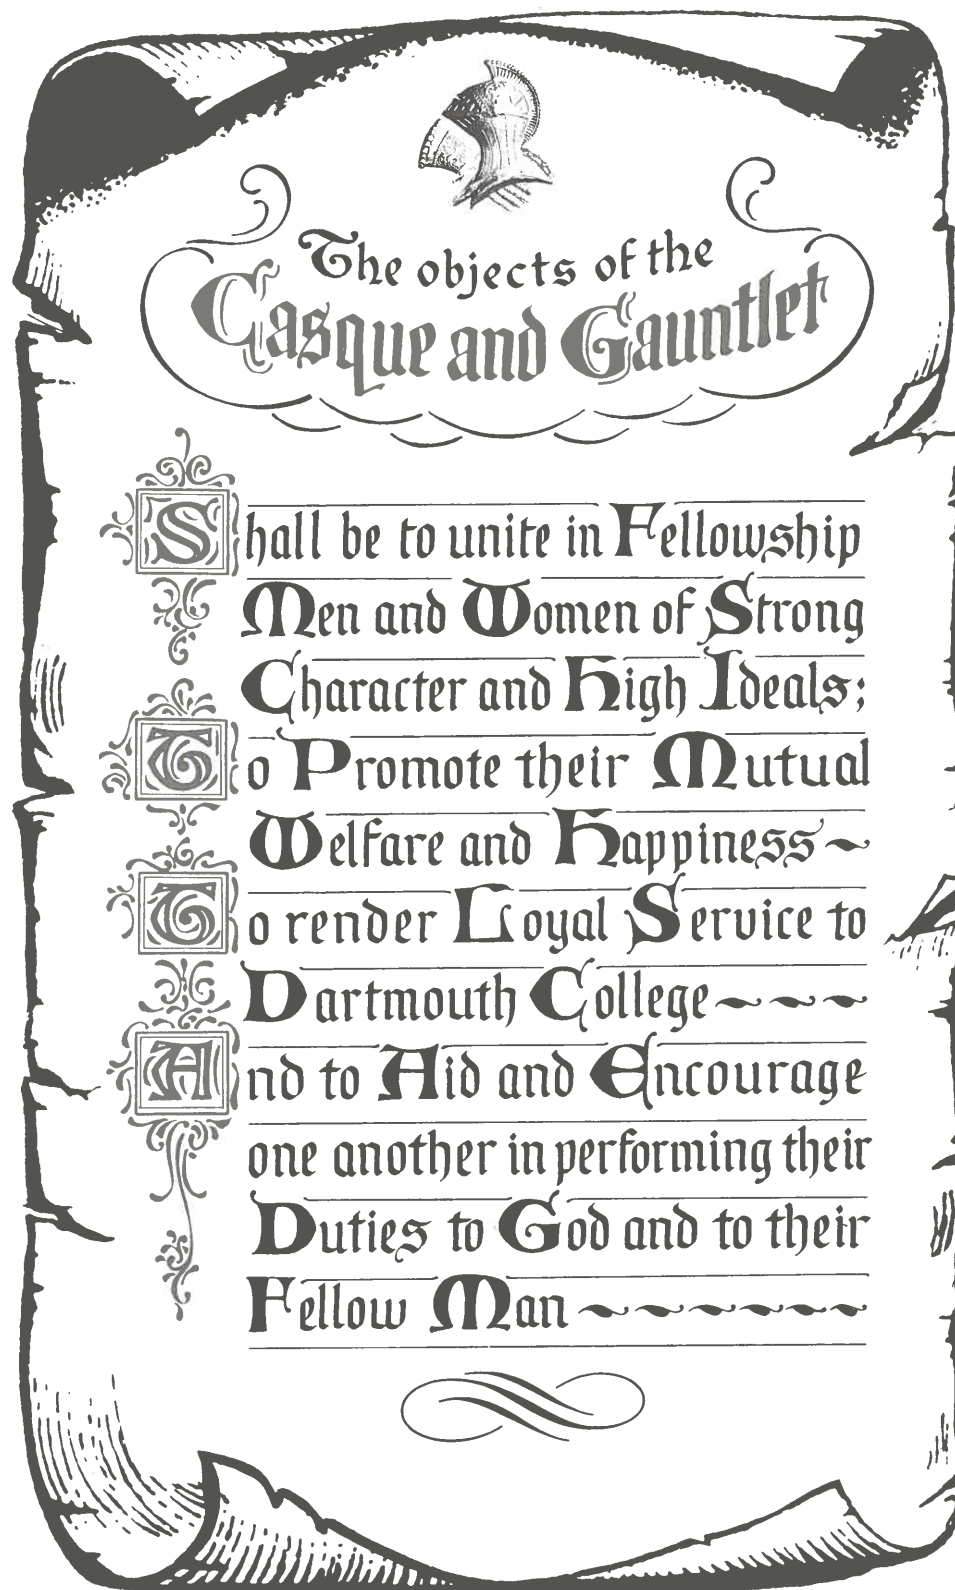 The objects of the
Casque and Gauntlet
Shall be to unite in Fellowship
Men and Women of Strong
Character and High Ideals;
To Promote their Mutual
Welfare and Happiness~
To render Loyal Service to
Dartmouth College~~~
And to Aid and Encourage
one another in performing their
Duties to God and to their
Fellow Man~~~~~~